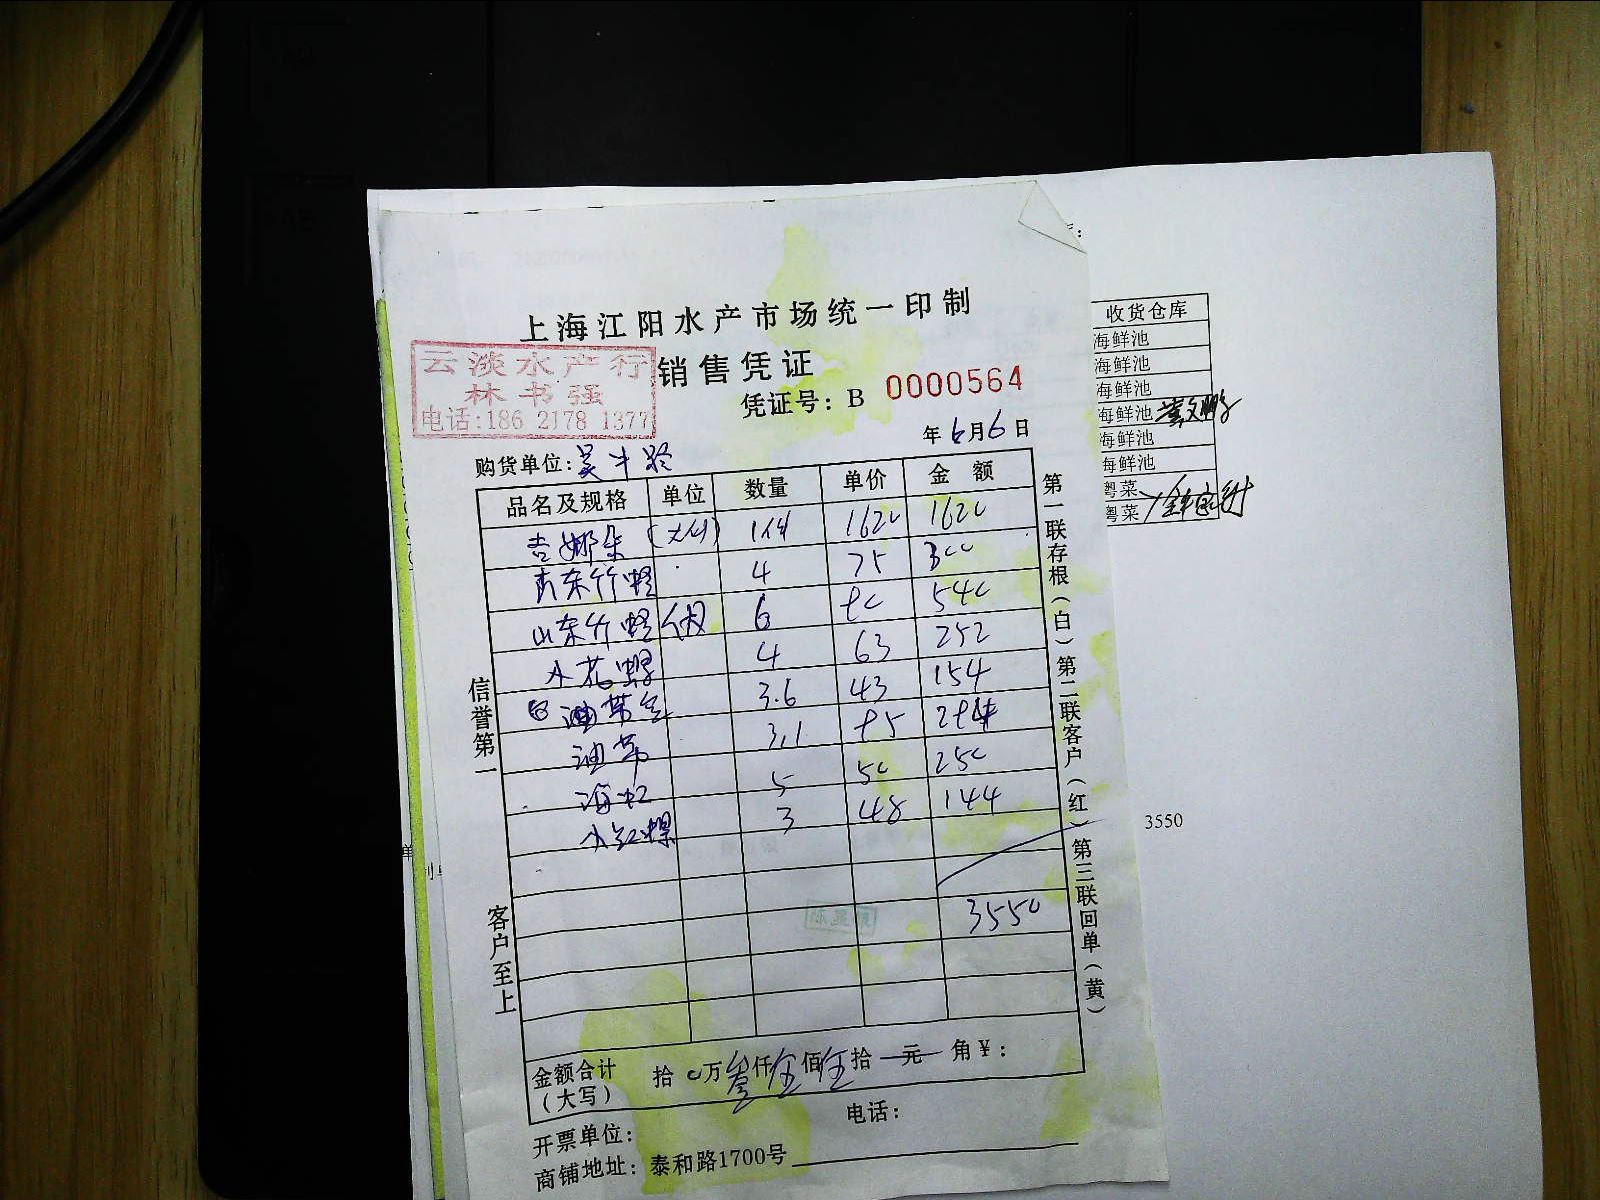 上海江阳水产市场统一印制
销售凭证
云淡水产行
林书强
电话:186 2178 1377
凭证号: B 0000564
年 6月6日
购货单位: 吴中路
品名及规格 单位 数量 单价 金额
吉娜朵 (大4) 1X4 1620 1620
山东竹蛏 4 75 300
山东竹蛏 6 90 540
小花螺 4 63 252
油带 3.6 43 154
油带 3.1 95 294
海虹 5 50 250
小红螺 3 48 144
3550
金额合计(大写) 拾 0万叁仟伍佰伍拾 元 角¥:
电话:
开票单位:
商铺地址: 泰和路1700号
信誉第一
客户至上
第一联存根(白)第二联客户(红)第三联回单(黄)
收货仓库
海鲜池
海鲜池
海鲜池
海鲜池
海鲜池
海鲜池
粤菜
粤菜
3550